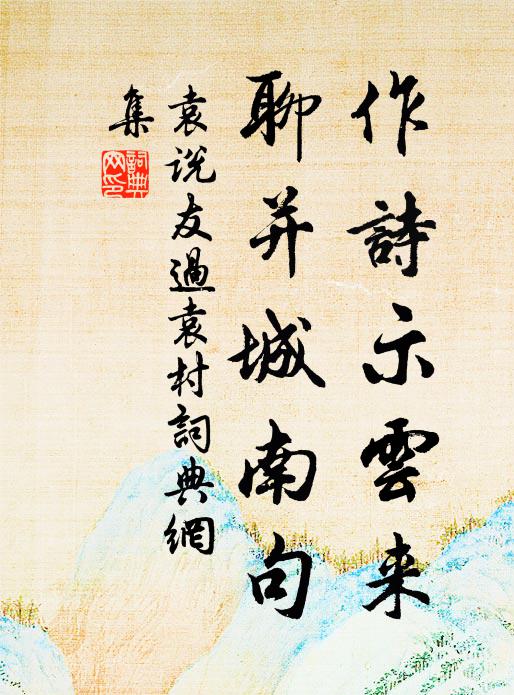 作詩示雲来
聊并城南句
袁说友過袁村詞典網
集
詞典網印